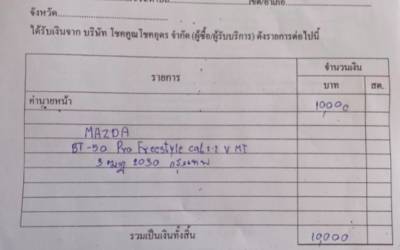 เขต/อำเภอ
จังหวัด
ได้รับเงินจาก บริษัท โชคคูณโชคอุดร จำกัด (ผู้ซื้อ/ผู้รับบริการ) ดังรายการต่อไปนี้
รายการ จำนวนเงิน
บาท สต.
ค่านายหน้า 10000
MAZDA
BT-50 Pro Freestyle cab 2.2 V MT
2030 กรุงเทพ
รวมเป็นเงินทั้งสิ้น 10000